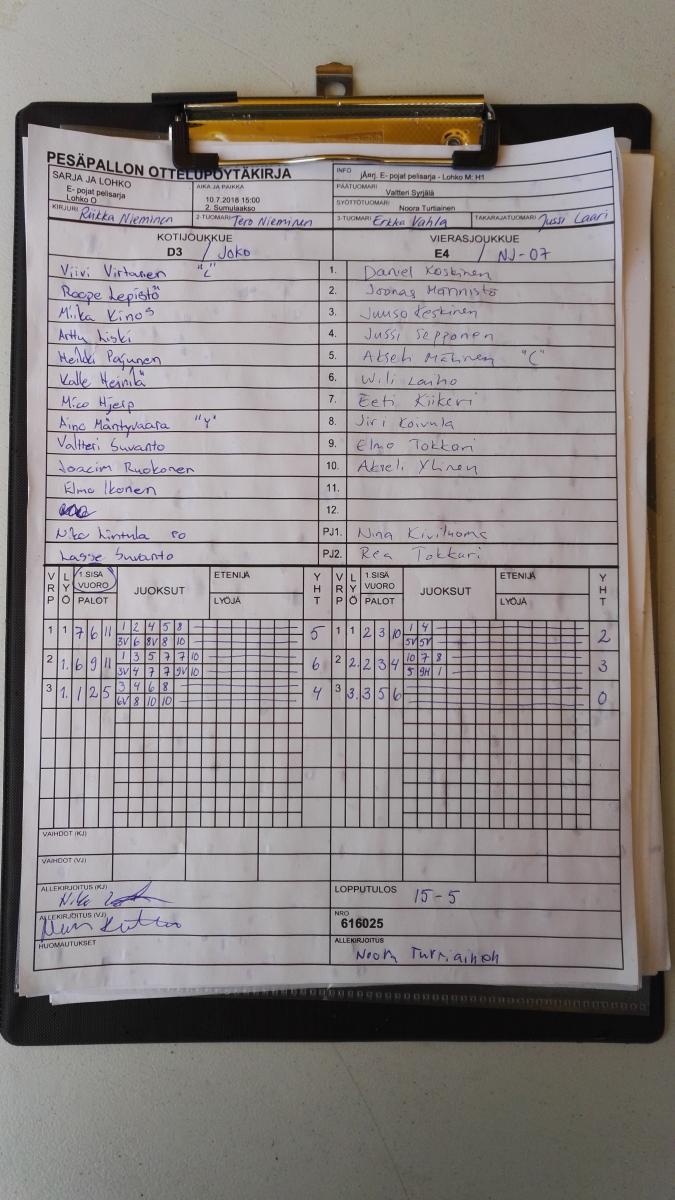 PESÄPALLON OTTELUPÖYTÄKIRJA
SARJA JA LOHKO
E- pojat pelisarja
Lohko O
AIKA JA PAIKKA
10.7.2018 15:00
2. Sumulaakso
INFO jÄrrj. E- pojat pelisarja - Lohko M: H1
PÄÄTUOMARI Valtteri Syrjälä
SYÖTTÖTUOMARI Noora Turtiainen
KIRJURI Riikka Nieminen 2-TUOMARI Tero Nieminen 3-TUOMARI Erkka Vahla TAKARAJATUOMARI Jussi Laari
KOTIJOUKKUE VIERASJOUKKUE
D3 / JoKo E4 / NJ-07
Viivi Virtanen "L" 1. Daniel Koskinen
Roope Lepistö 2. Joonas Männistö
Miika Kinos 3. Juuso Keskinen
Arttu Liski 4. Jussi Sepponen
Heikki Pajunen 5. "C"
Kalle Heinilä 6. Wili Laiho
Mico Hjerp 7. Eeti Kiikeri
Aino Mäntyvaara "Y" 8. Jiri Koivula
Valtteri Suvanto 9. Elmo Tokkari
Joacim Ruokonen 10. Akseli Ylinen
Elmo Ikonen 11.
12.
Niko Lintula PJ1. Nina
Lasse Suvanto PJ2. Rea Tokkari
VRP LYÖ 1.SISÄ VUORO PALOT JUOKSUT ETENIJÄ LYÖJÄ YHT VRP LYÖ 1.SISÄ VUORO PALOT JUOKSUT ETENIJÄ LYÖJÄ YHT
1 1 7 6 11 1 2 4 5 8 5 1 1 2 3 10 1 4 2
3V 6 8V 8 10 5V 5V
2 1. 6 9 11 1 3 5 7 7 10 6 2 2. 2 3 4 10 7 8 3
3V 4 7 7 9V 10 5 9H 1
3 1. 1 2 5 3 4 6 8 4 3 3. 3 5 6 0
6V 8 10 10
VAIHDOT (KJ)
VAIHDOT (VJ)
ALLEKIRJOITUS (KJ) LOPPUTULOS 15-5
ALLEKIRJOITUS (VJ) NRO
616025
HUOMAUTUKSET ALLEKIRJOITUS
Noora Turtiainen